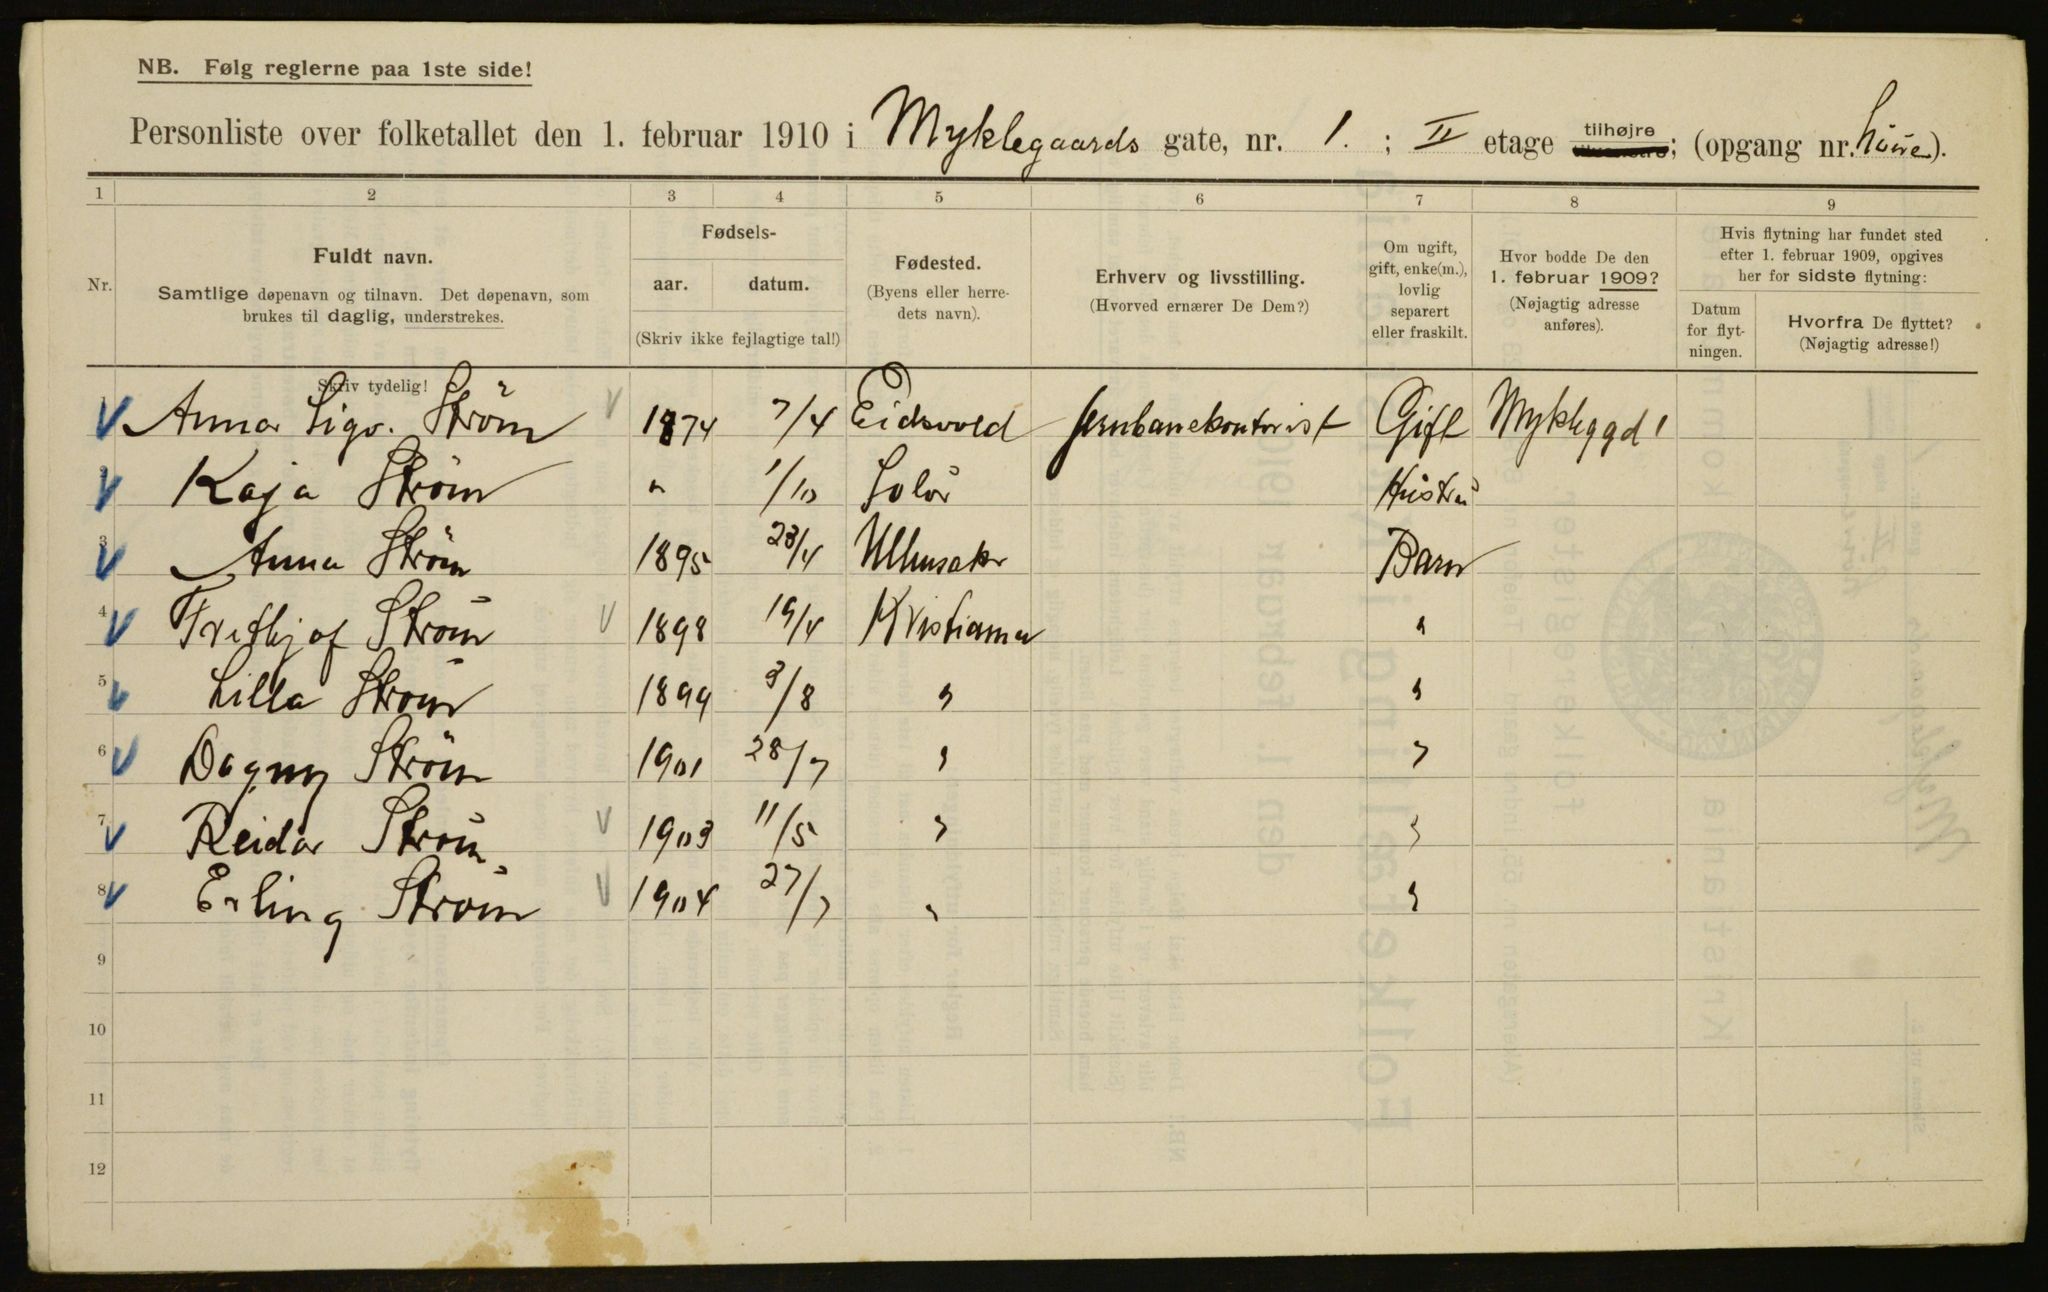 NB. Følg reglerne paa 1ste side!
Personliste over folketallet den 1. februar 1910 i Myklegaards gate, nr. 1. ; II etage tilhøjre tilvenstre; (opgang nr. ).
1 2 3 4 5 6 7 8 9
Nr.
Fuldt navn.
Samtlige døpenavn og tilnavn. Det døpenavn, som
brukes til daglig, understrekes.
Skriv tydelig!
Fødsels-
aar. datum.
(Skriv ikke fejlagtige tal!)
Fødested.
(Byens eller herre-
dets navn).
Erhverv og livsstilling.
(Hvorved ernærer De Dem?)
Om ugift,
gift, enke(m.),
lovlig
separert
eller fraskilt.
Hvor bodde De den
1. februar 1909?
(Nøjagtig adresse
anføres).
Hvis flytning har fundet sted
efter 1. februar 1909, opgives
her for sidste flytning:
Datum
for flyt-
ningen.
Hvorfra De flyttet?
(Nøjagtig adresse!)
Sigv. Ström 1874 7/4 Eidsvold Jernbanekontorist Gift Mykleggd 1
Kaja Ström " 1/10 Solör Hústrú
3 Anna Ström 1895 23/4 Ullensaker Barn
4 Frithjof Ström 1898 19/4 Kristiania "
5 Lilla Ström 1899 3/8 " "
6 Dagny Ström 1901 28/7 " "
7 Reidar Ström 1903 11/5 " "
8 Erling Ström 1904 27/7 " "
9
10
11
12